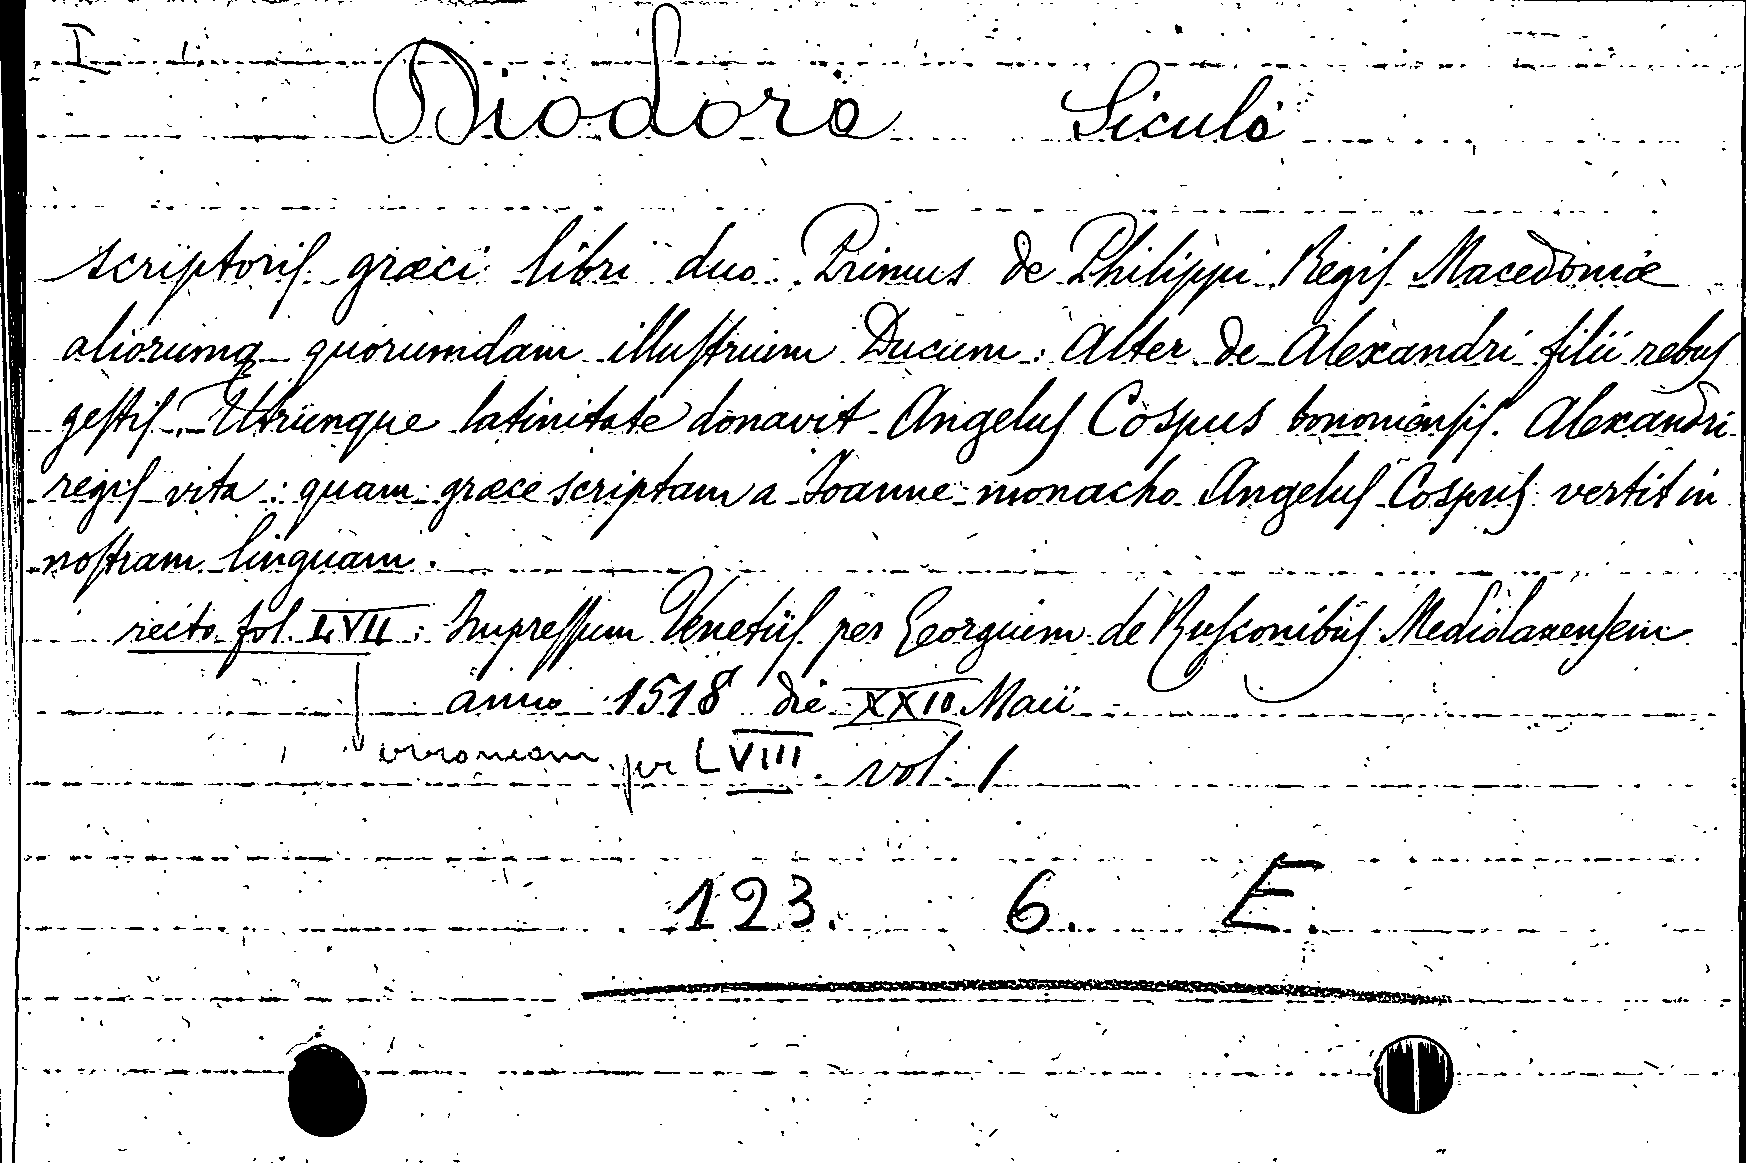 I
Diodoro Siculo
scriptoriſ græci libri duo: Primus de Philippi Regiſ Macedoniæ
aliorumq quorumdam illuſtrium Ducum: Alter de Alexandri filii rebuſ
geſtiſ. Utrunque latinitate donavit Angeluſ Cospus bononienſiſ. Alexandri
regiſ vita: quam græce scriptam a Joanne monacho Angeluſ Cospuſ vertit in
noſtram linguam.
recto fol. LVII: Impreſſum Venetiiſ per Georgium de Ruſconibuſ Mediolanenſem
anno 1518 die XXII Maii
per LVIII. vol. 1
123. 6. E.